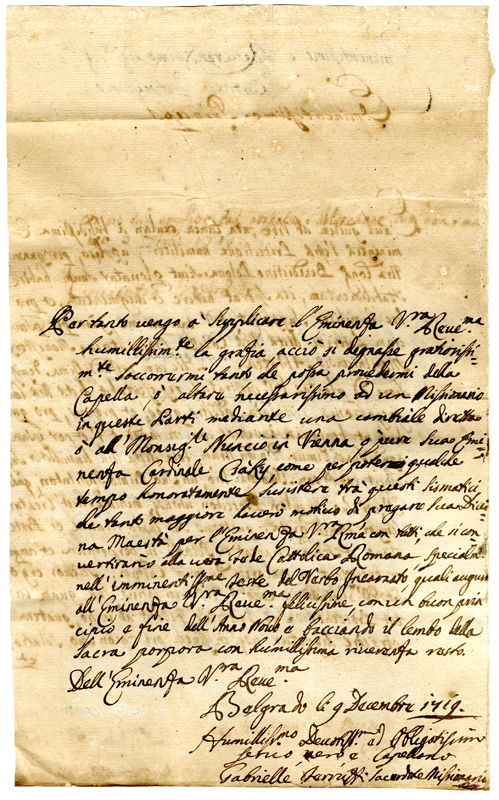 Per tanto vengo à supplicare l'Eminenza V.ra Reve.ma
humilissim.te la grazia acciò si degnasse gratiosissi=
m.te soccorrermi tanto che possa provedermi della
Capella, ò altare necessarissimo ad un Missionario
in queste Parti mediante una cambiale diretta
ò all' Monsig.re Nuncio in Vienna o pure Sua Emi=
nenza Cardinale Czaky come per poter qualche
tempo honoratamente susistere trà questi sismatici
che tanto maggiore haverò motivo di pregare Sua Divi=
na Maestà per l'Eminenza V.ra Rma con tutti che si con
vertiranno alla vera fede Cattolica Romana specialm.te
nell' imminenti feste del Verbo Incarnato, quali auguro
all' Eminenza V.ra Reve.ma felicissime, con un buon prin
cipio e fine dell' Anno Novo e bacciando il lembo della
Sacra porpora con humilissima riverenza resto.
Dell' Eminenza V.ra Reve.ma
Belgrado li 9 Decembre 1719.
Humilliss.mo Devotiss.mo ed Obligatissimo
servo vero e Capellano
Gabrielle Sacerdote Missionario